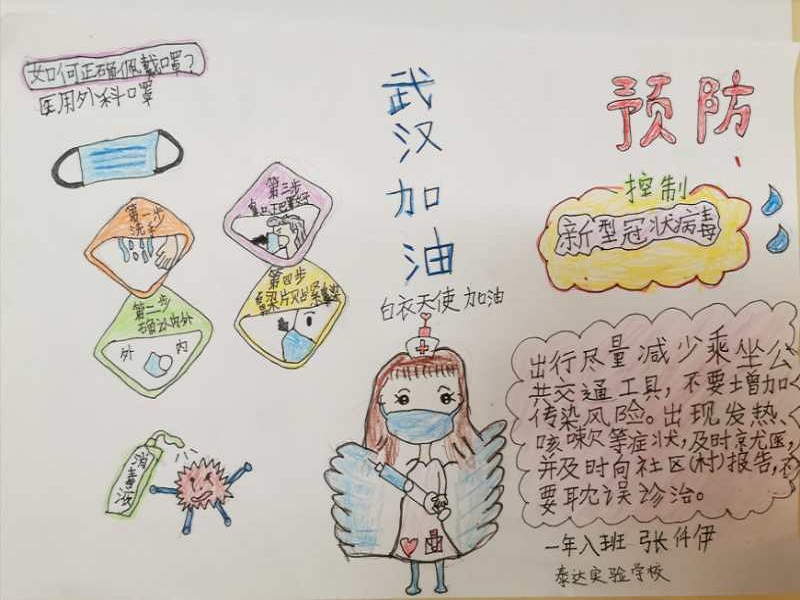 如何正确佩戴口罩？
医用外科口罩
第一步
洗手
第二步
确认内外
外 内
第三步
第四步
消毒液
武汉加油
白衣天使 加油
预防
控制
新型冠状病毒
出行尽量减少乘坐公
共交通工具，不要增加
传染风险。出现发热、
咳嗽等症状，及时就医，
并及时向社区(村)报告，不
要耽误诊治。
一年八班 张仟伊
泰达实验学校